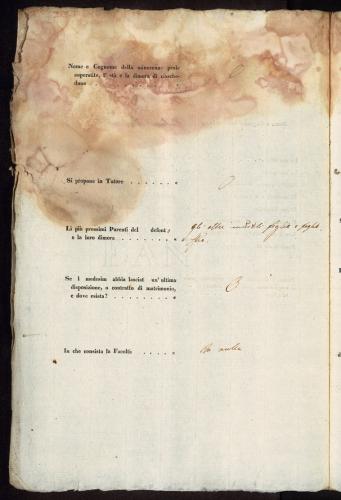 Nome e Cognome della minorenne prole
superstite, l' età e la dimora di ciasche-
duno
Si propone in Tutore . . . . . . . 0
Li più prossimi Parenti del defunto
e la loro dimora . . . . . . .
gli altri figlio e figlia
Se i medesim abbia lasciat un' ultima
disposizione, o contratto di matrimonio,
e dove esista? . . . . . . . .
In che consista la Facoltà . . . . . In nulla